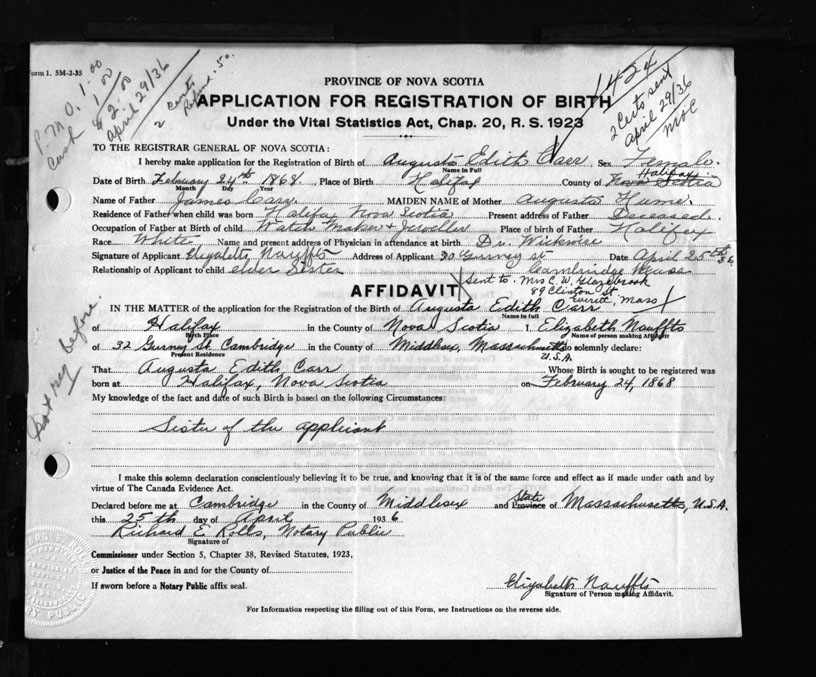 Form 1. 5M-2-35
P.M.O. 1.00
Cash 1.00
$2.00
April 29/36
2 Certs
Before .50
1424
2 Certs sent
April 29/36
PROVINCE OF NOVA SCOTIA
APPLICATION FOR REGISTRATION OF BIRTH
Under the Vital Statistics Act, Chap. 20, R. S. 1923
TO THE REGISTRAR GENERAL OF NOVA SCOTIA:
I hereby make application for the Registration of Birth of Augusta Edith Carr, Sex Female.
Name in Full
Halifax
Date of Birth February 24th 1868. Place of Birth Halifax County of Nova Scotia
Month Day Year
Name of Father James Carr. MAIDEN NAME of Mother Augusta Hume.
Residence of Father when child was born Halifax Nova Scotia Present address of Father Deceased.
Occupation of Father at Birth of Child Watch Maker & Jeweller Place of Birth of Father Halifax
Race White Name and present address of Physician in attendance at birth Dr. Wickwire
Signature of Applicant Elizabeth Nauffts Address of Applicant 30 Gurney St Date April 25th 36
Relationship of Applicant to child elder Sister Cambridge
Sent to Mrs C. W. Glazebrook
89 Clinton St
Everett, Mass
AFFIDAVIT
Not reg before
IN THE MATTER of the application for the Registration of the Birth of Augusta Edith Carr
Name in full
of Halifax in the County of Nova Scotia I, Elizabeth Nauffts
Birth Place Name of person making Affidavit
of 32 Gurney St. Cambridge in the County of Middlesex, Massachusetts do solemnly declare:
Present Residence U.S.A
That Augusta Edith Carr Whose Birth is sought to be registered was
born at Halifax, Nova Scotia on February 24, 1868
My knowledge of the fact and date of such Birth is based on the following Circumstances:
Sister of the applicant
I make this solemn declaration conscientiously believing it to be true, and knowing that it is of the same force and effect as if made under oath and by
virtue of The Canada Evidence Act.
Declared before me at Cambridge in the County of Middlesex and State Province of Massachusetts, U.S.A.
this 25th day of April 1936
Richard E. Rolls, Notary Public
Signature of
Commissioner under Section 5, Chapter 38, Revised Statutes, 1923,
or Justice of the Peace in and for the County of
If sworn before a Notary Public affix seal.
Elizabeth Nauffts
Signature of Person making Affidavit.
For Information respecting the filling out of this Form, see Instructions on the reverse side.